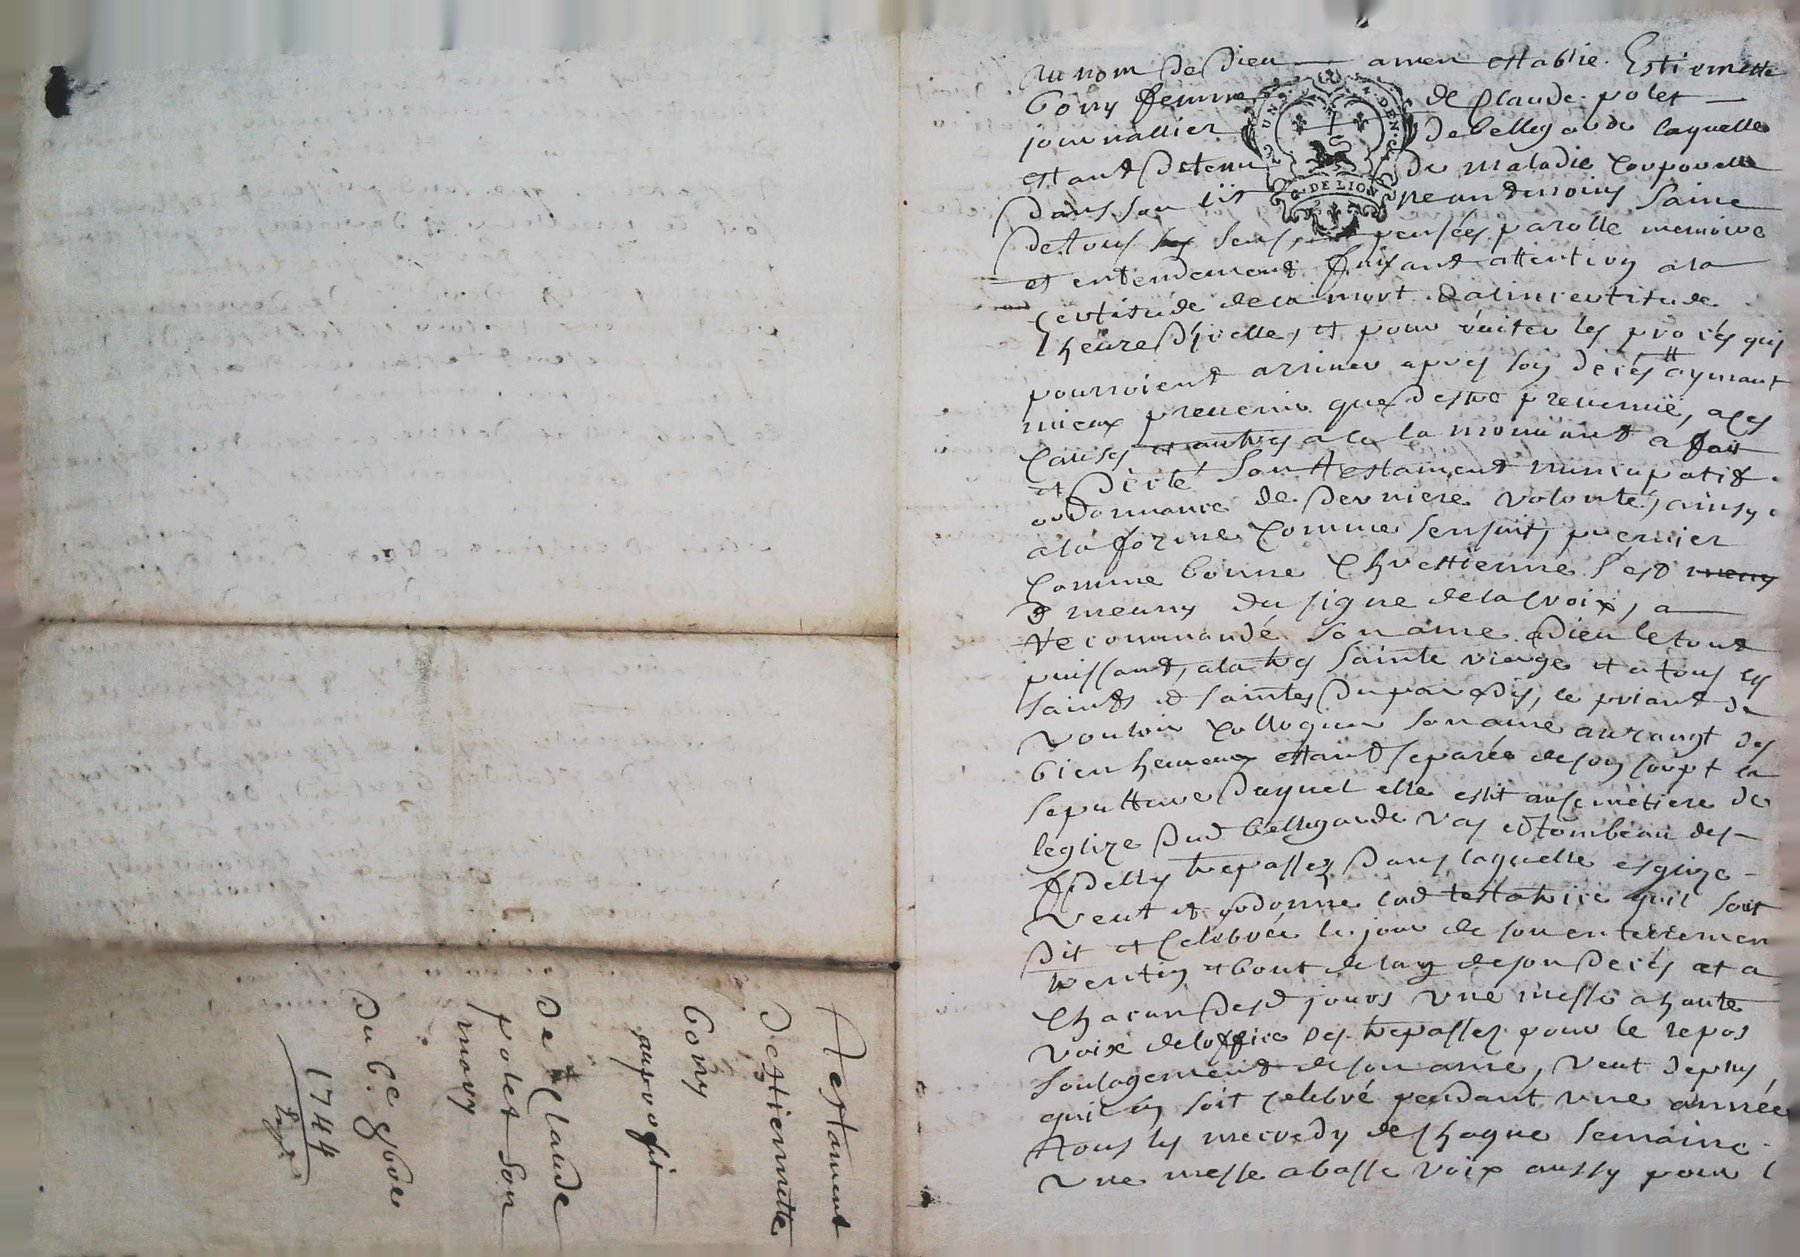 Au nom de Dieu amen establie Estiennette
Gony femme de Claude polet
journallier de bellegarde laquelle
estant detenu de maladie corporelle
dans son lit neandmoins saine
de tous ses sens pensées parolle memoire
et entendement faisant attention a la
certitude de la mort & a lincertitude
lheure dicelle, et pour eviter les procés qui
pourroient arriver apres son decés aymant
mieux prevenir que destre prevenüe, a ces
causes et autres a ce la mouvant a fait
et dicté son testament nuncupatif
ordonnance de derniere volonté, ainsy
a la forme comme sensuit, premier
comme bonne Chrettienne sest
munny du signe de la Croix, a
recommandé son ame a Dieu le tout
puissant, a la tres sainte vierge et a tous les
saints et saintes du paradis, le priant de
vouloir colloquer son ame au rangt des
bienheureux estant separée de son corpt la
sepulture duquel elle eslit au semetiere de
leglize dud bellegarde vas et tombeau des
fidelles trepassez dans laquelle esglize
veut et ordonne lad testatrice quil soit
dit et celebrée le jour de son enterremen
trentin et bout de lan de son decés et a
chacun desd jours une messe a haute
voix de loffice des trepassez pour le repos
soulagement de son ame, veut de plus
quil en soit celebré pendant une année
tous les mecredy de chaque semaine
une messe a basse voix aussy pour l
UN S. DEN.
G. DE LION
Testament
Destiennette
Gony
au proffit
de Claude
polet son
mary
Du 6e 9bre
1744